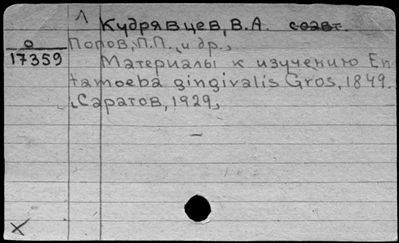 1 Кудрявцев, В.А. соавт.
о Попов, П.П., и др.,
17359 Материалы к изучению En
tamoeba gingivalis Gros, 1849.
Саратов, 1929,